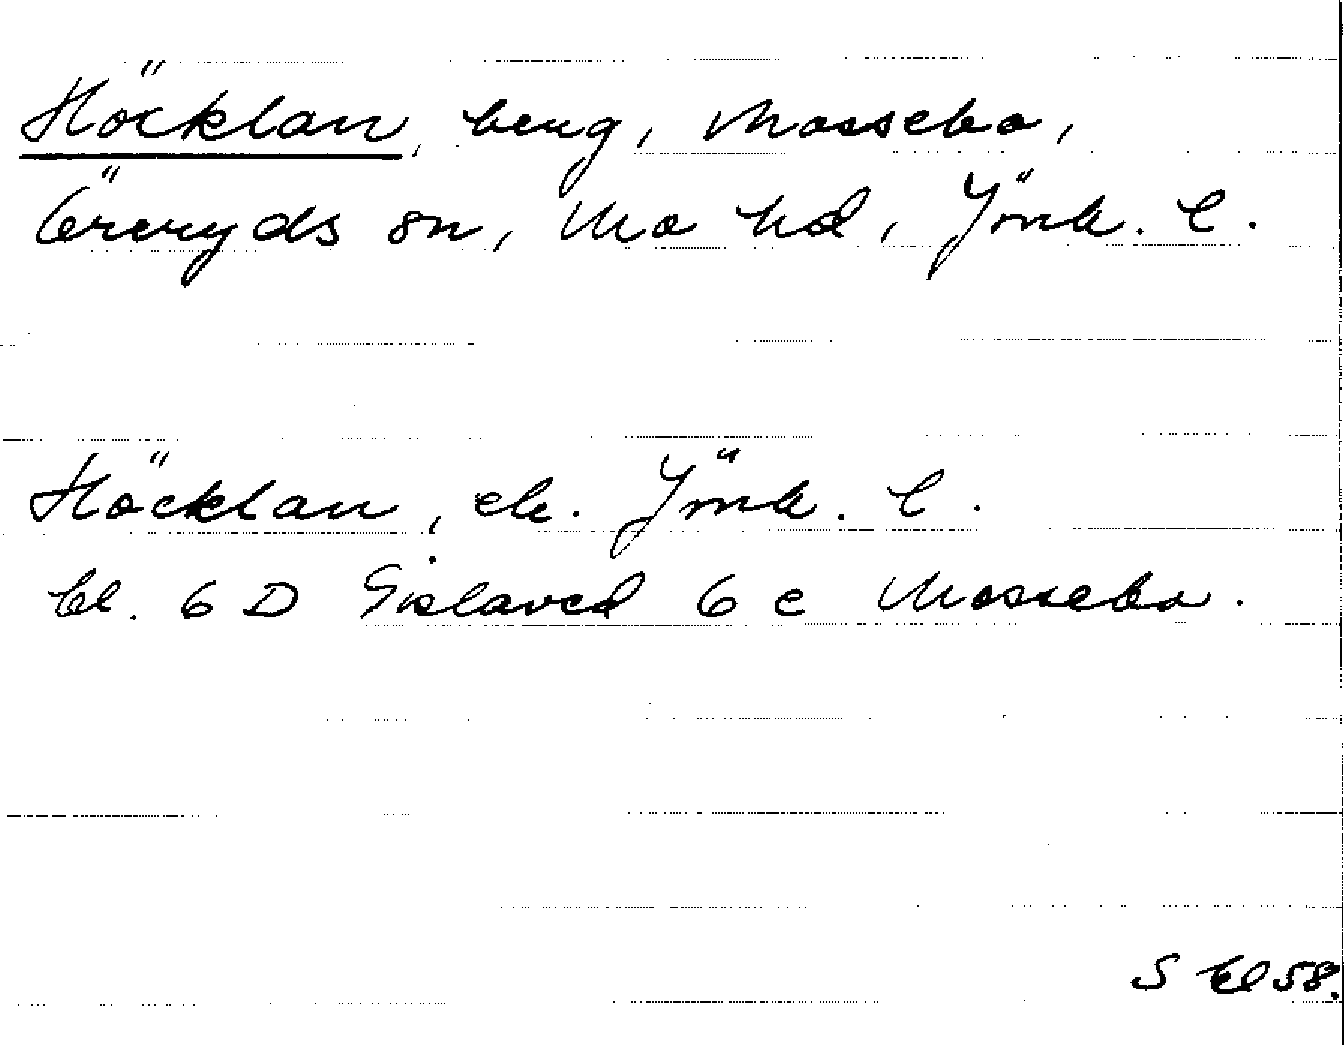 Höcklan, berg, Mossebo,
Öreryds sn, Mo hd, Jönk. l.
Höcklan, ek. Jönk. l.
bl. 6 D Gislaved 6 c Mossebo.
S bl 58.